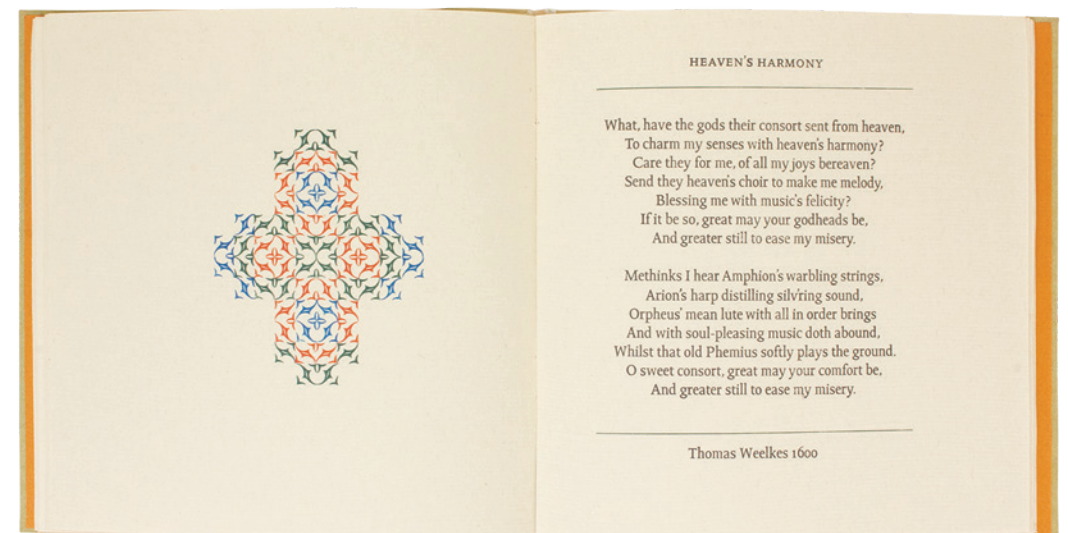 HEAVEN'S HARMONY
What, have the gods their consort sent from heaven,
To charm my senses with heaven's harmony?
Care they for me, of all my joys bereaven?
Send they heaven's choir to make me melody,
Blessing me with music's felicity?
If it be so, great may your godheads be,
And greater still to ease my misery.
Methinks I hear Amphion's warbling strings,
Arion's harp distilling silv'ring sound,
Orpheus' mean lute with all in order brings
And with soul-pleasing music doth abound,
Whilst that old Phemius softly plays the ground.
O sweet consort, great may your comfort be,
And greater still to ease my misery.
Thomas Weelkes 1600